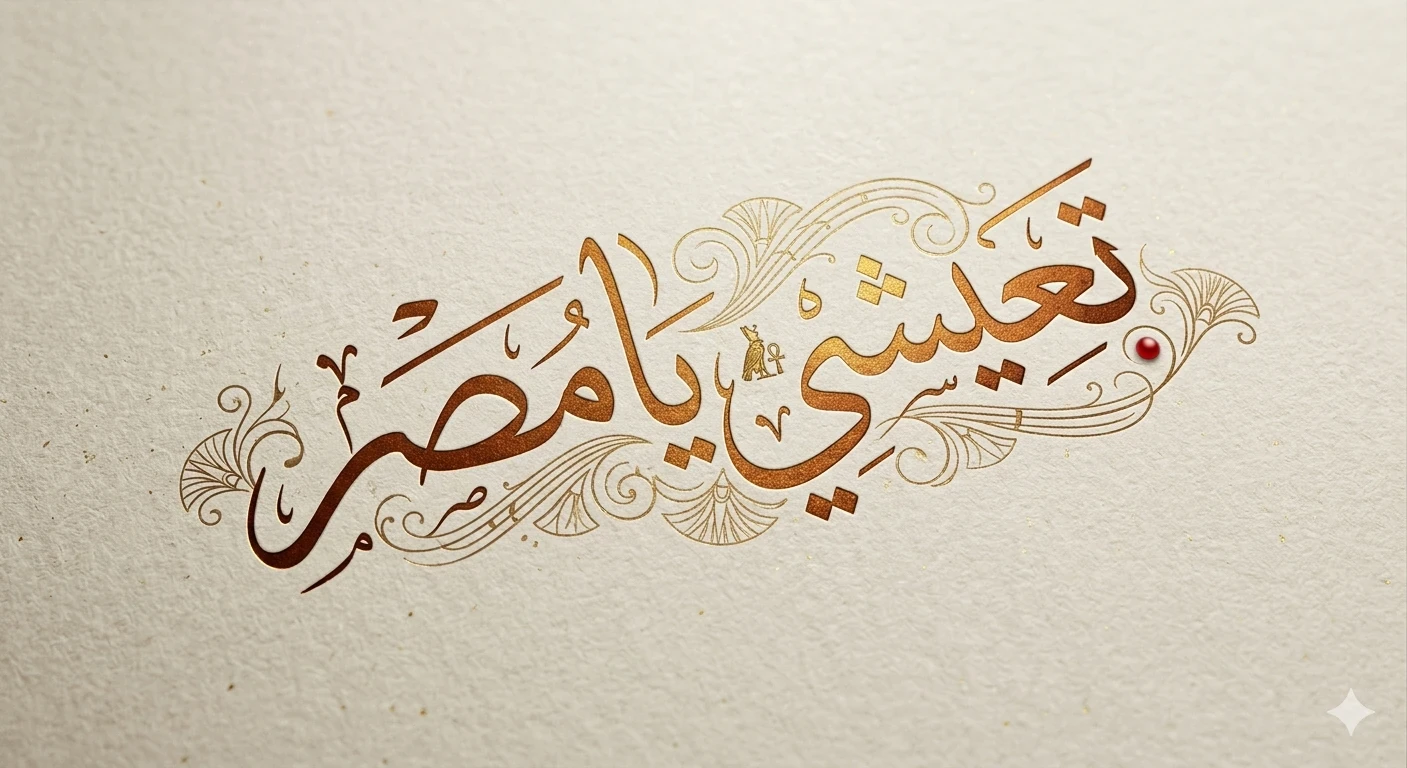 تعيشي يا مصر